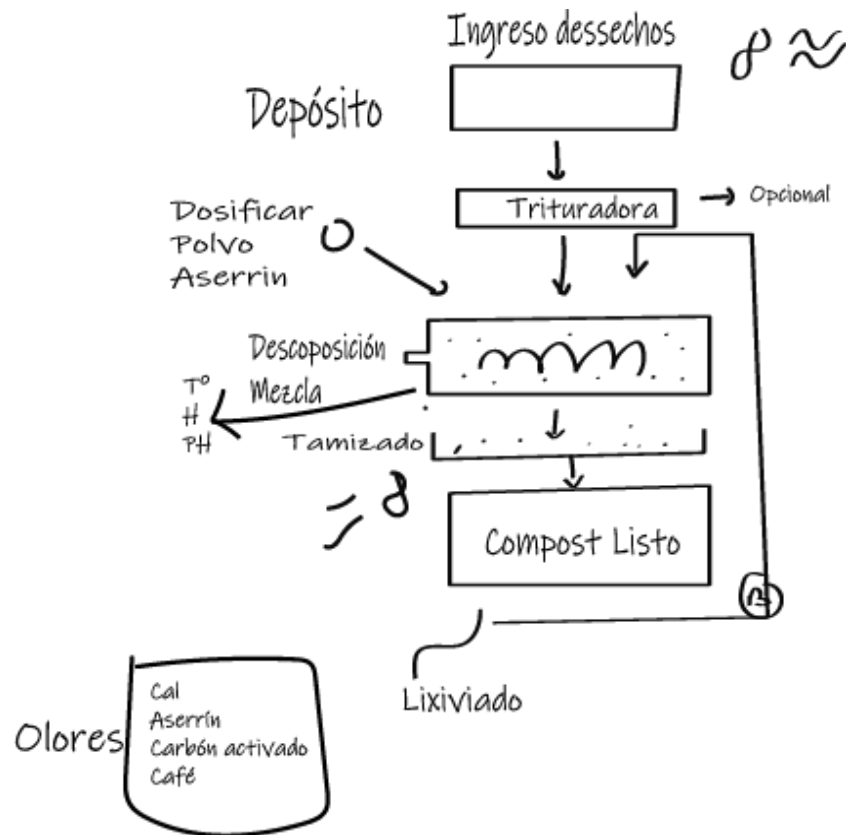 Ingreso dessechos
Depósito
Trituradora
Opcional
Dosificar
Polvo
Aserrin
Descoposición
Mezcla
T°
H
PH
Tamizado
Compost Listo
B
Lixiviado
Olores
Cal
Aserrín
Carbón activado
Café